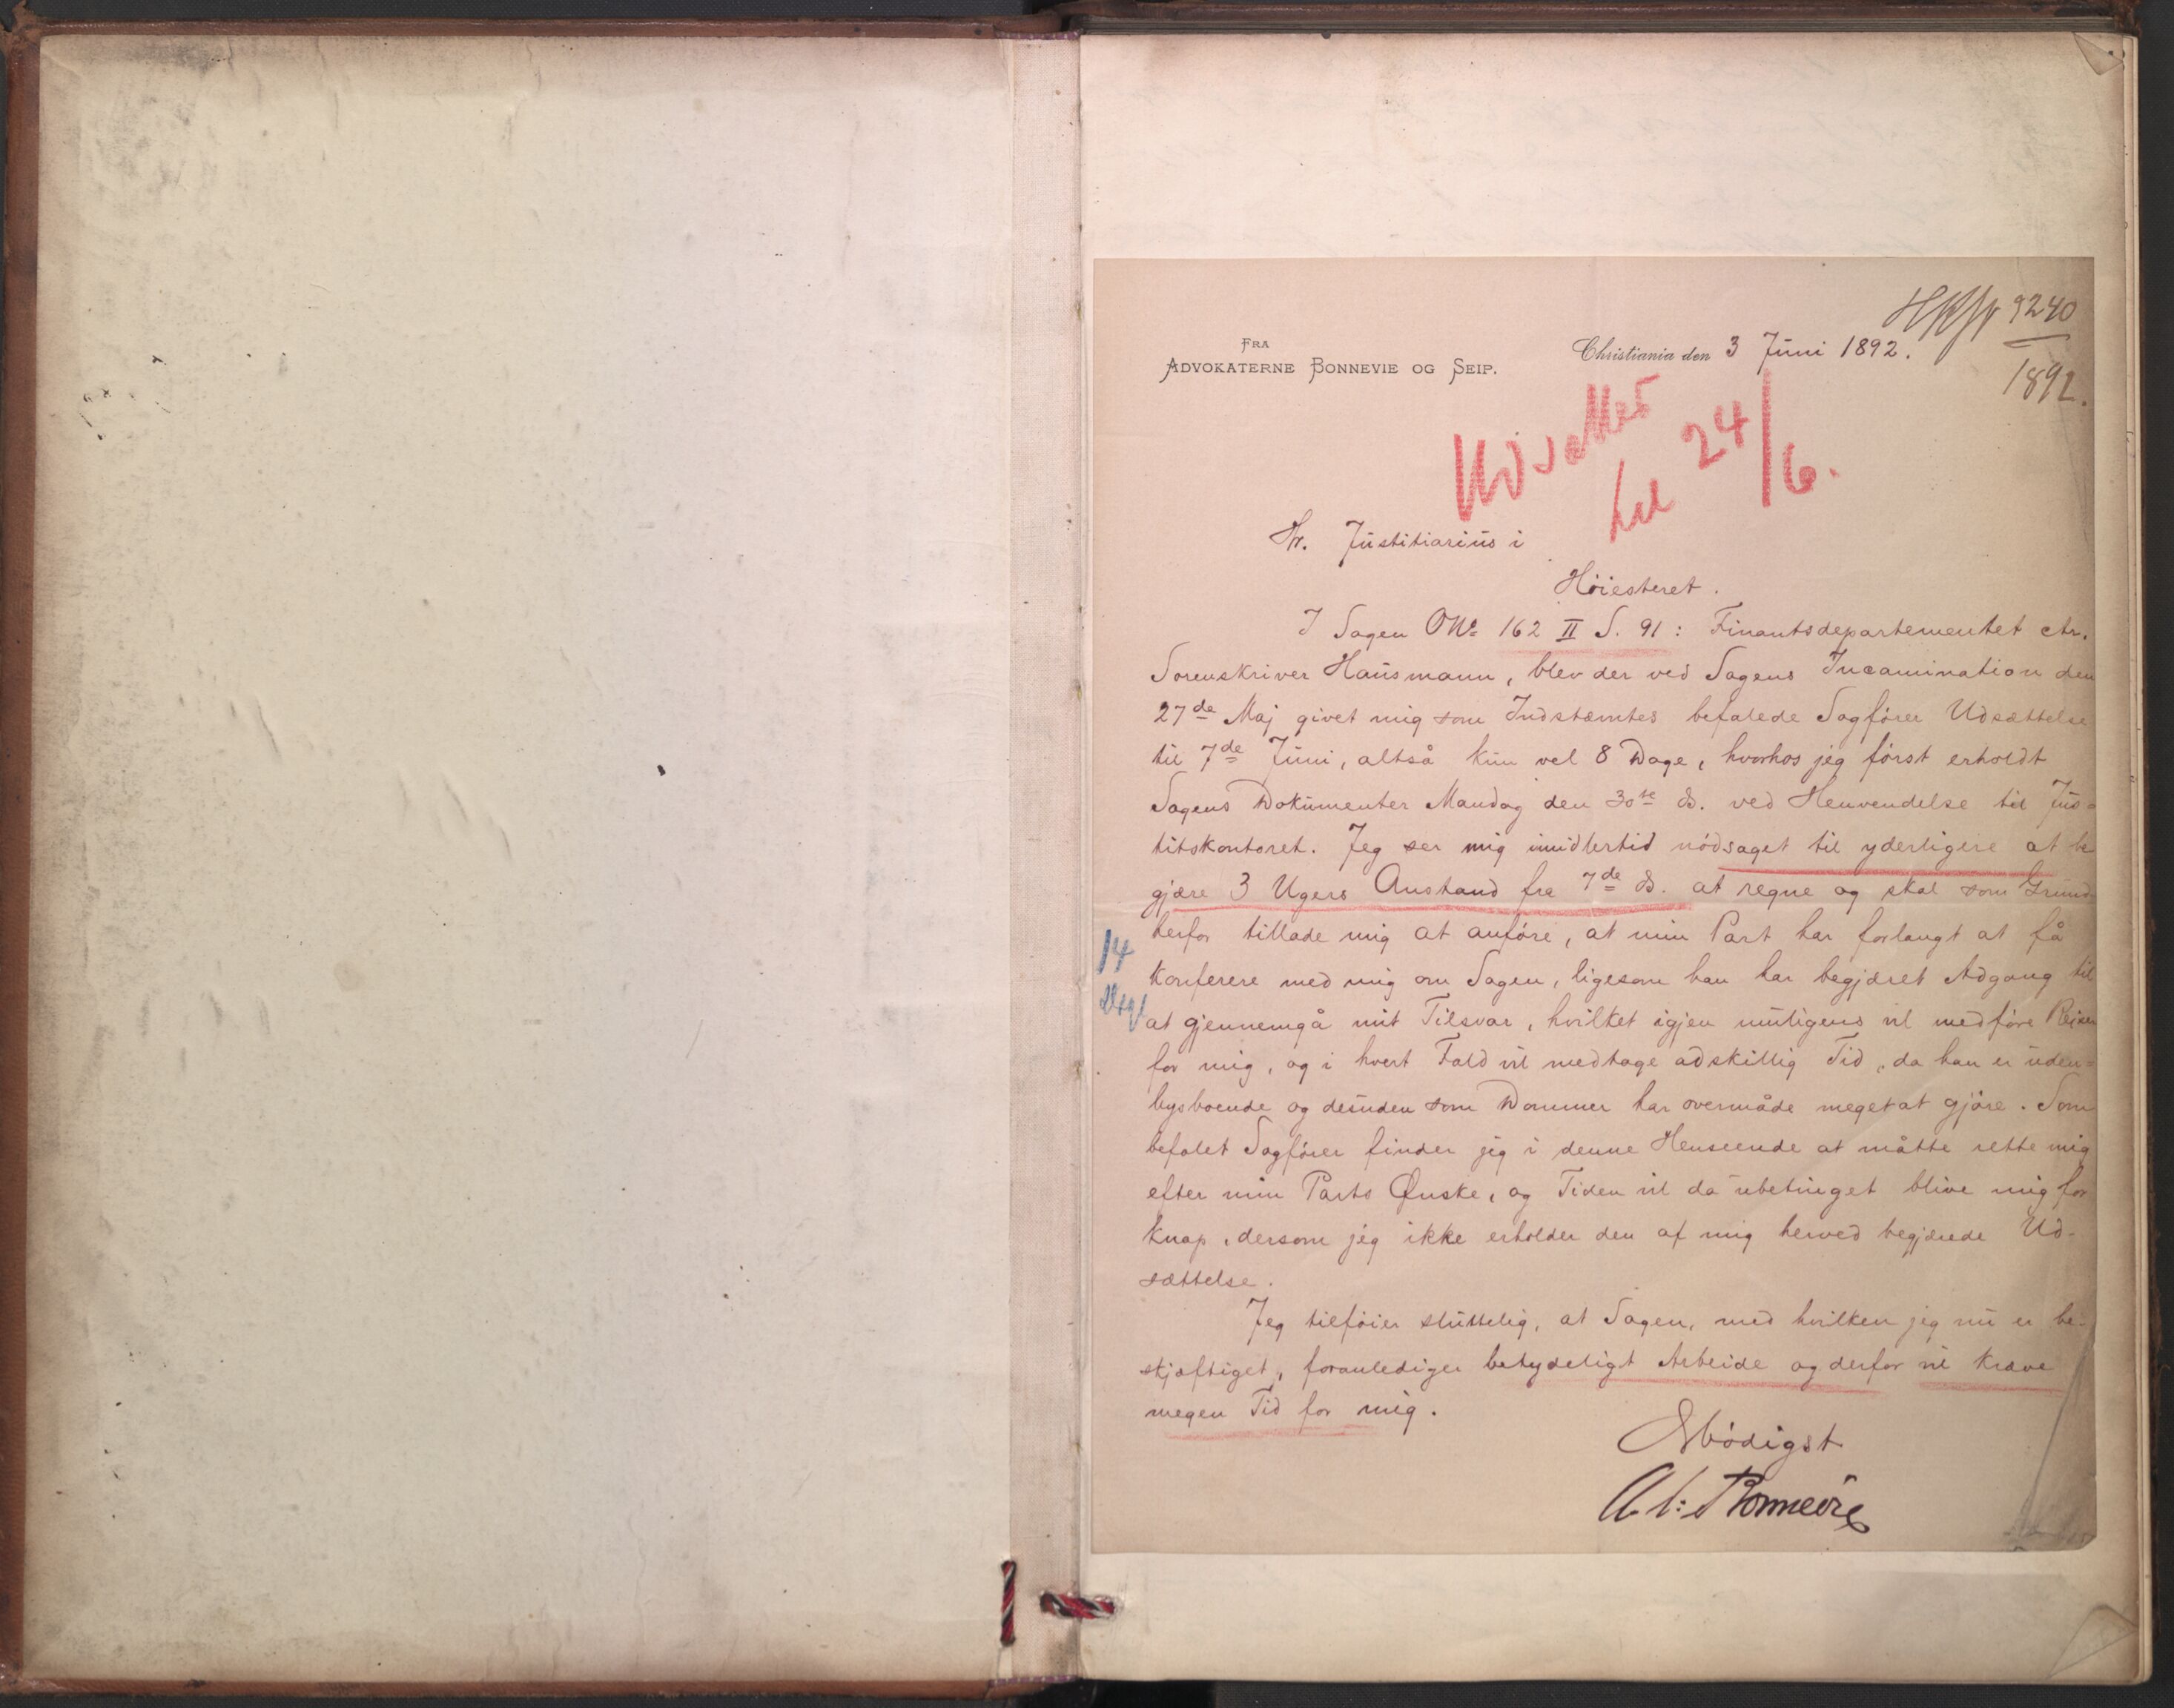 9240
1892.
Fra
Advokaterne Bonnevie og Seip.
Christiania den 3 Juni 1892.
Udsættes
til 24/6.
Hr. Justitiarius i
Høiesteret.
I Sagen ONo 162 II S. 91: Finantsdepartementet ctr.
Sorenskriver Hausmann, blev der ved Sagens Incamination den
27de Maj givet mig som Indstæmtes befalede Sagfører Udsættelse
til 7de Juni, altså kun vel 8 Dage, hvorhos jeg først erholdt
Sagens Dokumenter Mandag den 30te ds. ved Henvendelse til Jus-
titskontoret. Jeg ser mig imidlertid nødsaget til yderligere at be
gjære 3 Ugers Anstand fra 7de ds. at regne og skal som Grund
herfor tillade mig at anføre, at min Part har forlangt at få
14
konferere med mig om Sagen, ligesom han har begjæret Adgang til
Dage
at gjennemgå mit Tilsvar, hvilket igjen muligens vil medføre Reiser
for mig, og i hvert Fald vil medtage adskillig Tid, da han er uden=
bysboende og desuden som Dommer har overmåde meget at gjøre. Som
befalet Sagfører finder jeg i denne Henseende at måtte rette mig
efter min Parts Ønske, og Tiden vil da ubetinget blive mig for
knap, dersom jeg ikke erholder den af mig herved begjærede Ud-
sættelse.
Jeg tilføier sluttelig, at Sagen, med hvilken jeg nu er be-
skjæftiget, foranlediger betydeligt Arbeide og derfor vil kræve
megen Tid for mig.
Ærbødigst
Bonnevie